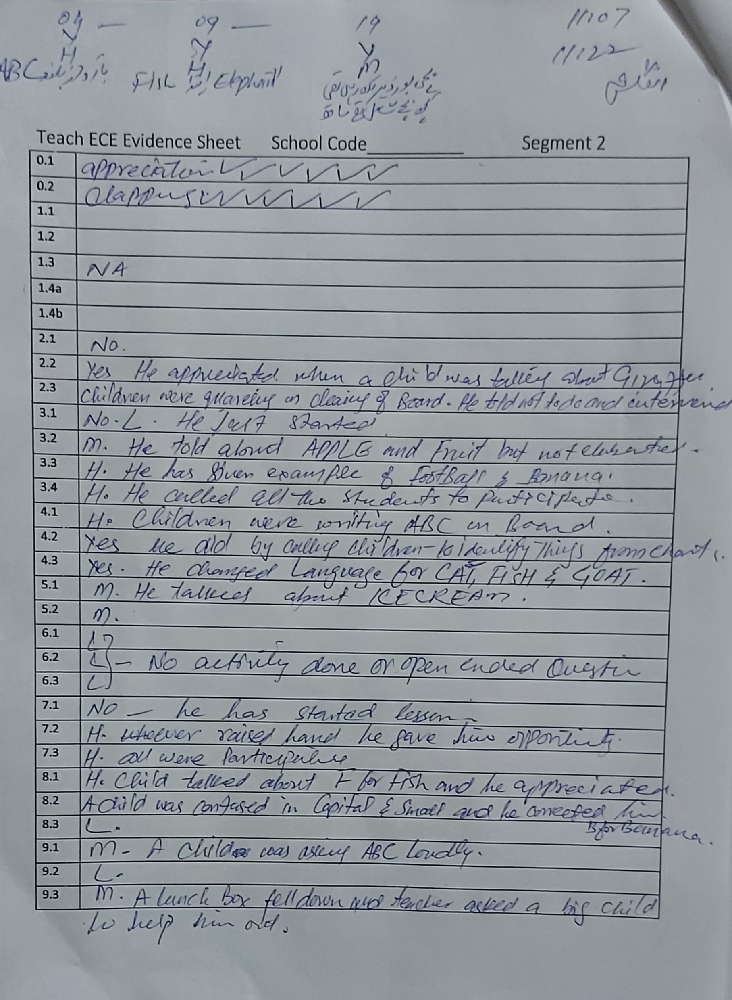 04 — 09 — 19 11107
Y Y Y 11122
H H M
ABC FISH Elephant
Teach ECE Evidence Sheet School Code__________ Segment 2
0.1 appreciation ✓ ✓ ✓ ✓ ✓
0.2 Clapping ✓ ✓ ✓ ✓ ✓ ✓
1.1
1.2
1.3 NA
1.4a
1.4b
2.1 No.
2.2 Yes He appreciated when a child was talking about
2.3 Children were on of Board. He told not to do and
3.1 No. L. He Just started
3.2 M. He told aloud APPLE and Fruit but not
3.3 H. He has given example of FootBall & Banana.
3.4 H. He called all the students to participate.
4.1 H. Children were writing ABC on Board.
4.2 Yes he did by calling children to identify Things from chart.
4.3 Yes. He changed Language for CAT, FISH & GOAT.
5.1 M. He talked about ICECREAM.
5.2 M.
6.1 L
6.2 L — No activity done or open ended
6.3 L
7.1 No — he has started lesson
7.2 H. whoever raised hand he gave him
7.3 H. all were
8.1 H. Child talked about F for Fish and he appreciated.
8.2 A child was confused in Capital & Small and he corrected him
8.3 L. B for Banana.
9.1 M - A child was ABC loudly.
9.2 L.
9.3 M. A lunch Box fell down and teacher asked a big child
to help him